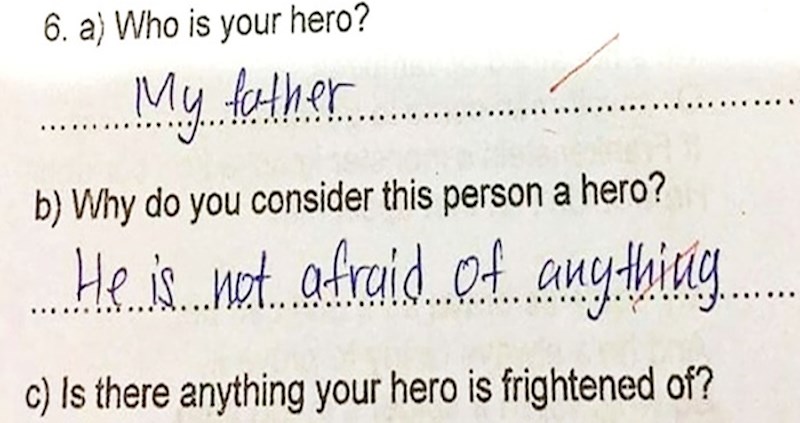 6. a) Who is your hero?
My father
b) Why do you consider this person a hero?
He is not afraid of anything
c) Is there anything your hero is frightened of?